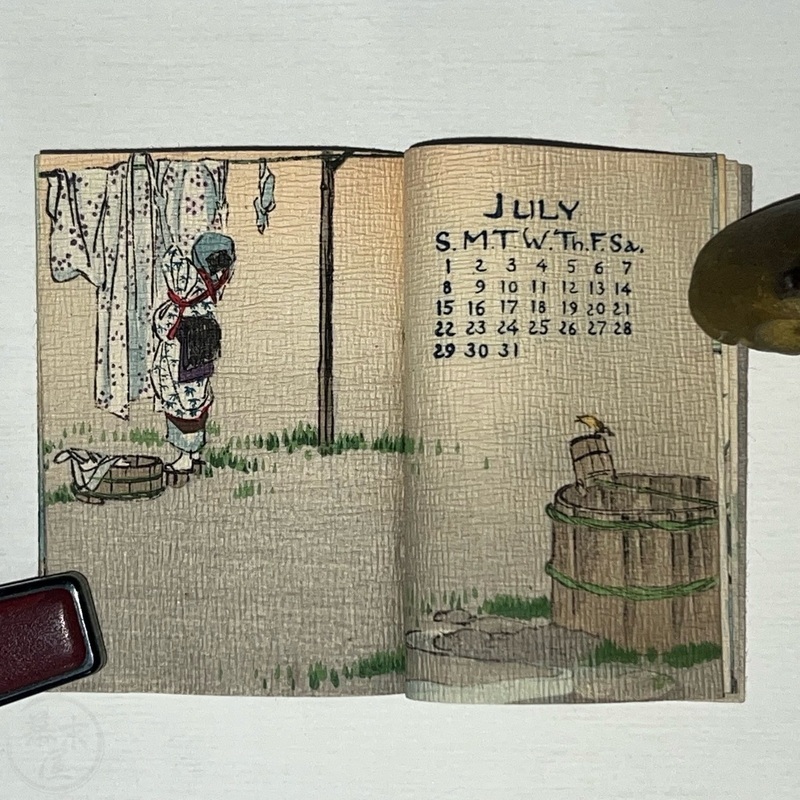 JULY
S. M. T W. Th. F. Sa.
1 2 3 4 5 6 7
8 9 10 11 12 13 14
15 16 17 18 19 20 21
22 23 24 25 26 27 28
29 30 31